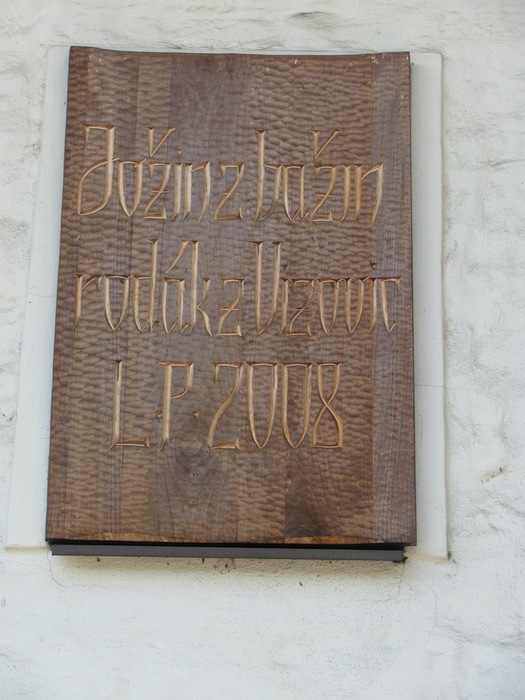 Jožin z bažin
rodák z Vizovic
L.P. 2008